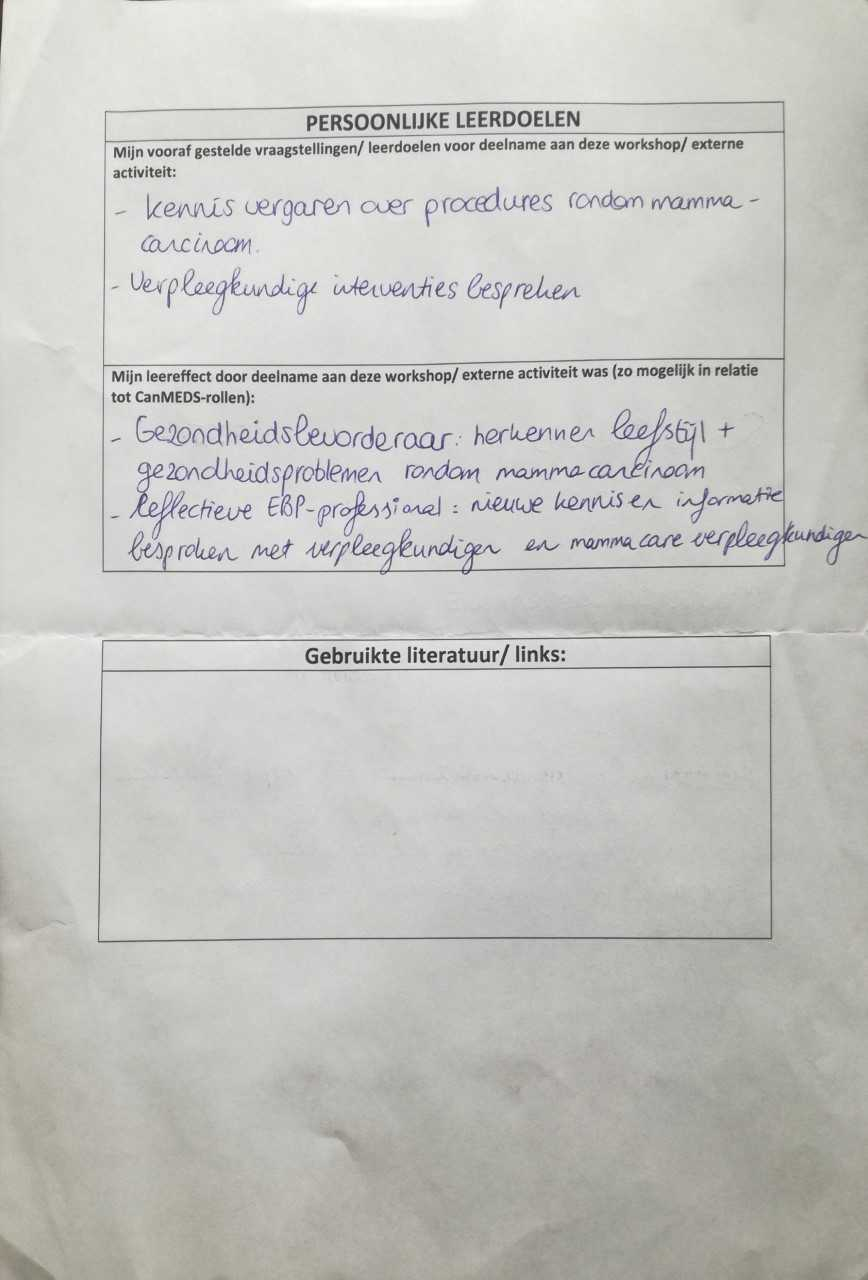 PERSOONLIJKE LEERDOELEN
Mijn vooraf gestelde vraagstellingen/ leerdoelen voor deelname aan deze workshop/ externe
activiteit:
- kennis vergaren over procedures rondom mamma-
carcinoom.
- Verpleegkundige interventies bespreken
Mijn leereffect door deelname aan deze workshop/ externe activiteit was (zo mogelijk in relatie
tot CanMEDS-rollen):
- Gezondheidsbevorderaar: herkennen leefstijl +
gezondheidsproblemen rondom mammacarcinoom
- Reflectieve EBP-professional: nieuwe kennis en informatie
besproken met verpleegkundigen en mammacare verpleegkundigen
Gebruikte literatuur/ links: